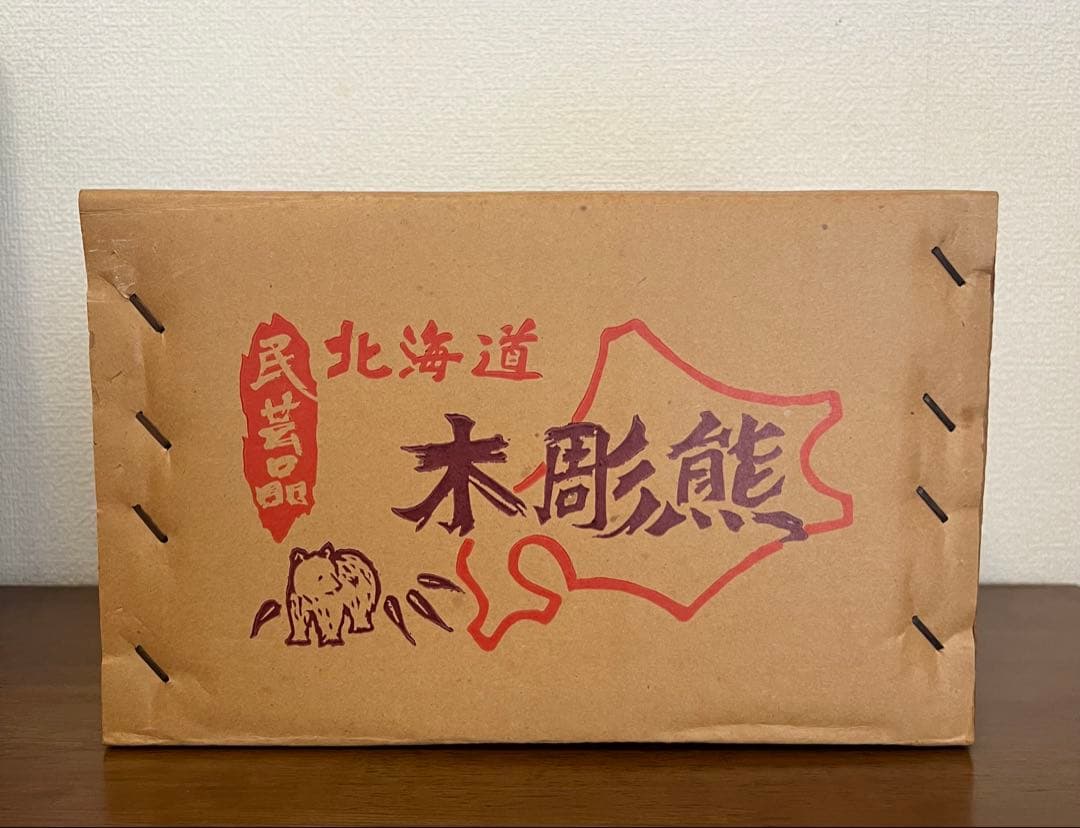 民芸品
北海道
木彫熊